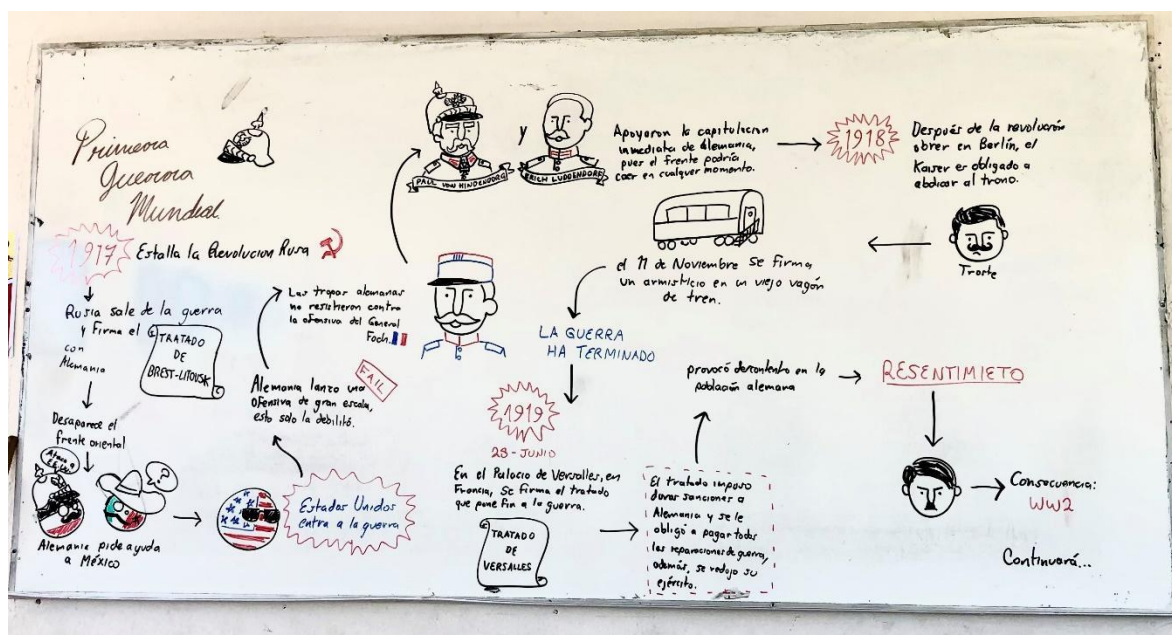 Primera
Guerra
Mundial
1917
Estalla la Revolucion Rusa
Rusia sale de la guerra
y firma el
TRATADO
DE
BREST-LITOVSK
con
Alemania
Desaparece el
frente oriental
Ataca a
EE.UU
?
Alemania pide ayuda
a México
Estados Unidos
entra a la guerra
Alemania lanzo una
ofensiva de gran escala,
esto solo la debilitó.
FAIL
Las tropas alemanas
no resistieron contra
la ofensiva del General
Foch.
PAUL VON HINDENDORG
y
ERICH LUDDENDORF
Apoyaron la capitulacion
inmediata de Alemania,
pues el frente podría
caer en cualquier momento.
1918
Después de la revolución
obrer en Berlín, el
Kaiser es obligado a
abdicar al trono.
Triste
el 11 de Noviembre se firma
un armisticio en un viejo vagón
de tren.
LA GUERRA
HA TERMINADO
1919
28-JUNIO
En el Palacio de Versalles, en
Francia, se firma el tratado
que pone fin a la guerra.
TRATADO
DE
VERSALLES
El tratado impuso
duras sanciones a
Alemania y se le
obligó a pagar todas
las reparaciones de guerra,
además, se redujo su
ejército.
provocó descontento en la
población alemana
RESENTIMIETO
Consecuencia:
WW2
Continuará...